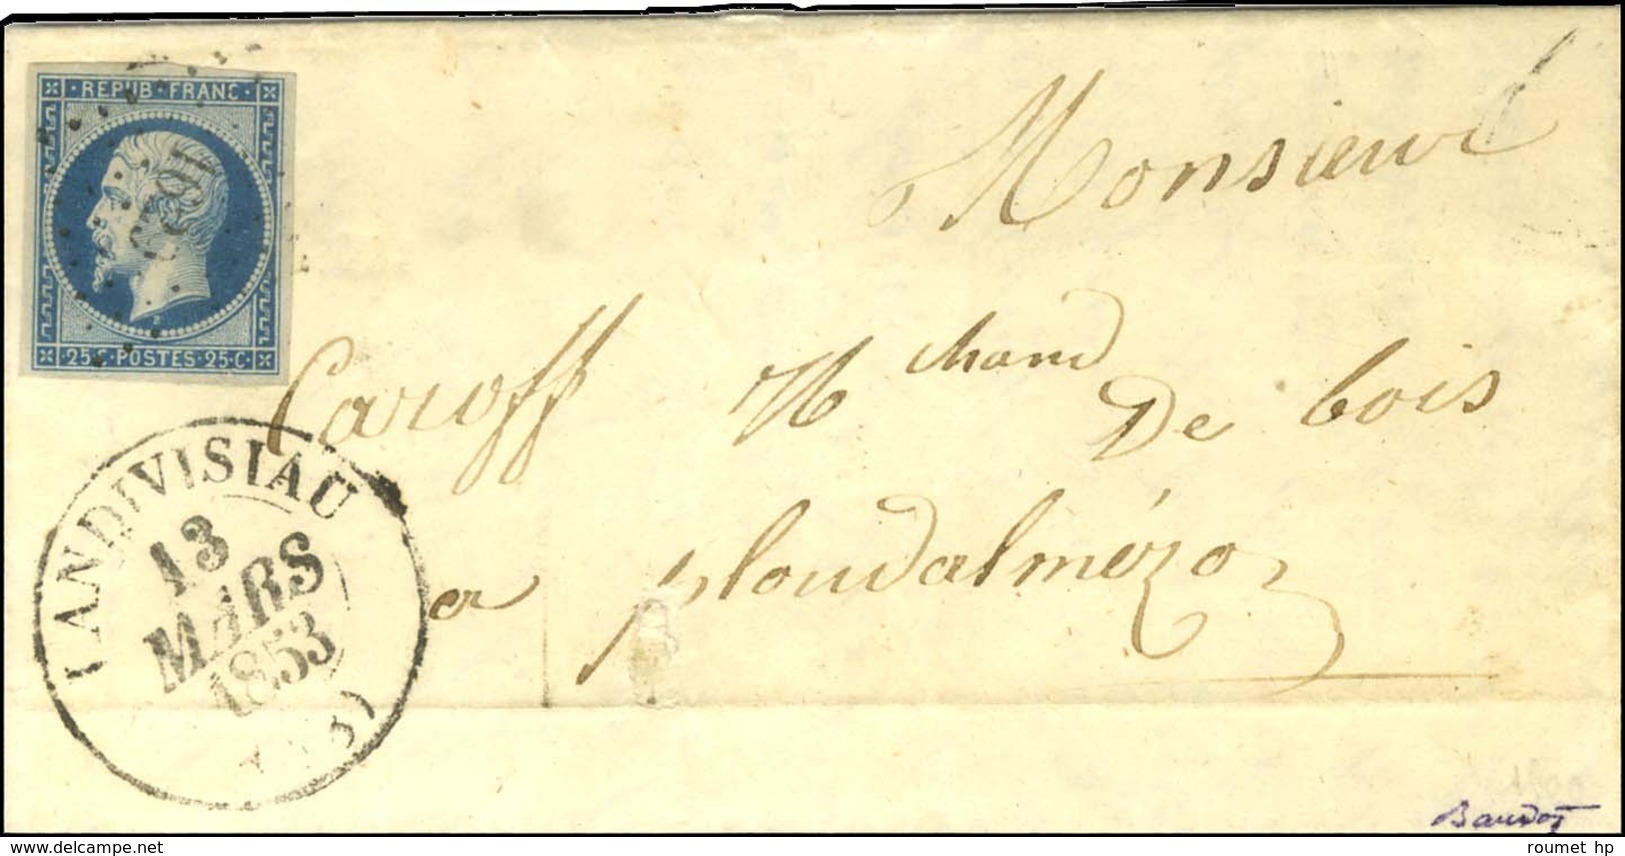 · REPUB · FRANC ·
25·C · POSTES · 25·C
Monsieur
Caroff Mchand De bois
a ploudalmézo
LANDIVISIAU
13
MARS
1853
(28)
Baudot
roumet hp